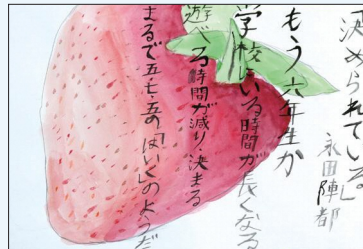 「決められている。」
永田陣都
もう六年生か
学校いる時間が長くなる
遊べる時間が減り、決まる
まるで五七五の「はいく」のようだ